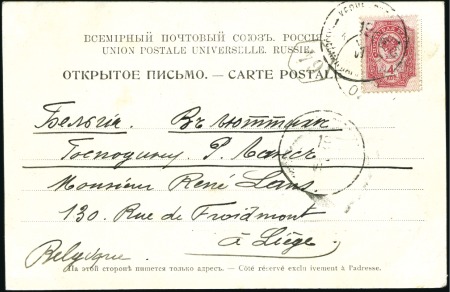 ВСЕМІРНЫЙ ПОЧТОВЫЙ СОЮЗЪ. РОССІЯ
UNION POSTALE UNIVERSELLE. RUSSIE.
ОТКРЫТОЕ ПИСЬМО. — CARTE POSTALE
Бельгія. Въ
Господину Р.
Monsieur René Lans.
130. Rue de Froidmont
à Liége.
Belgique
На этой сторонѣ пишется только адресъ. — Côté réservé exclusivement à l'adresse.